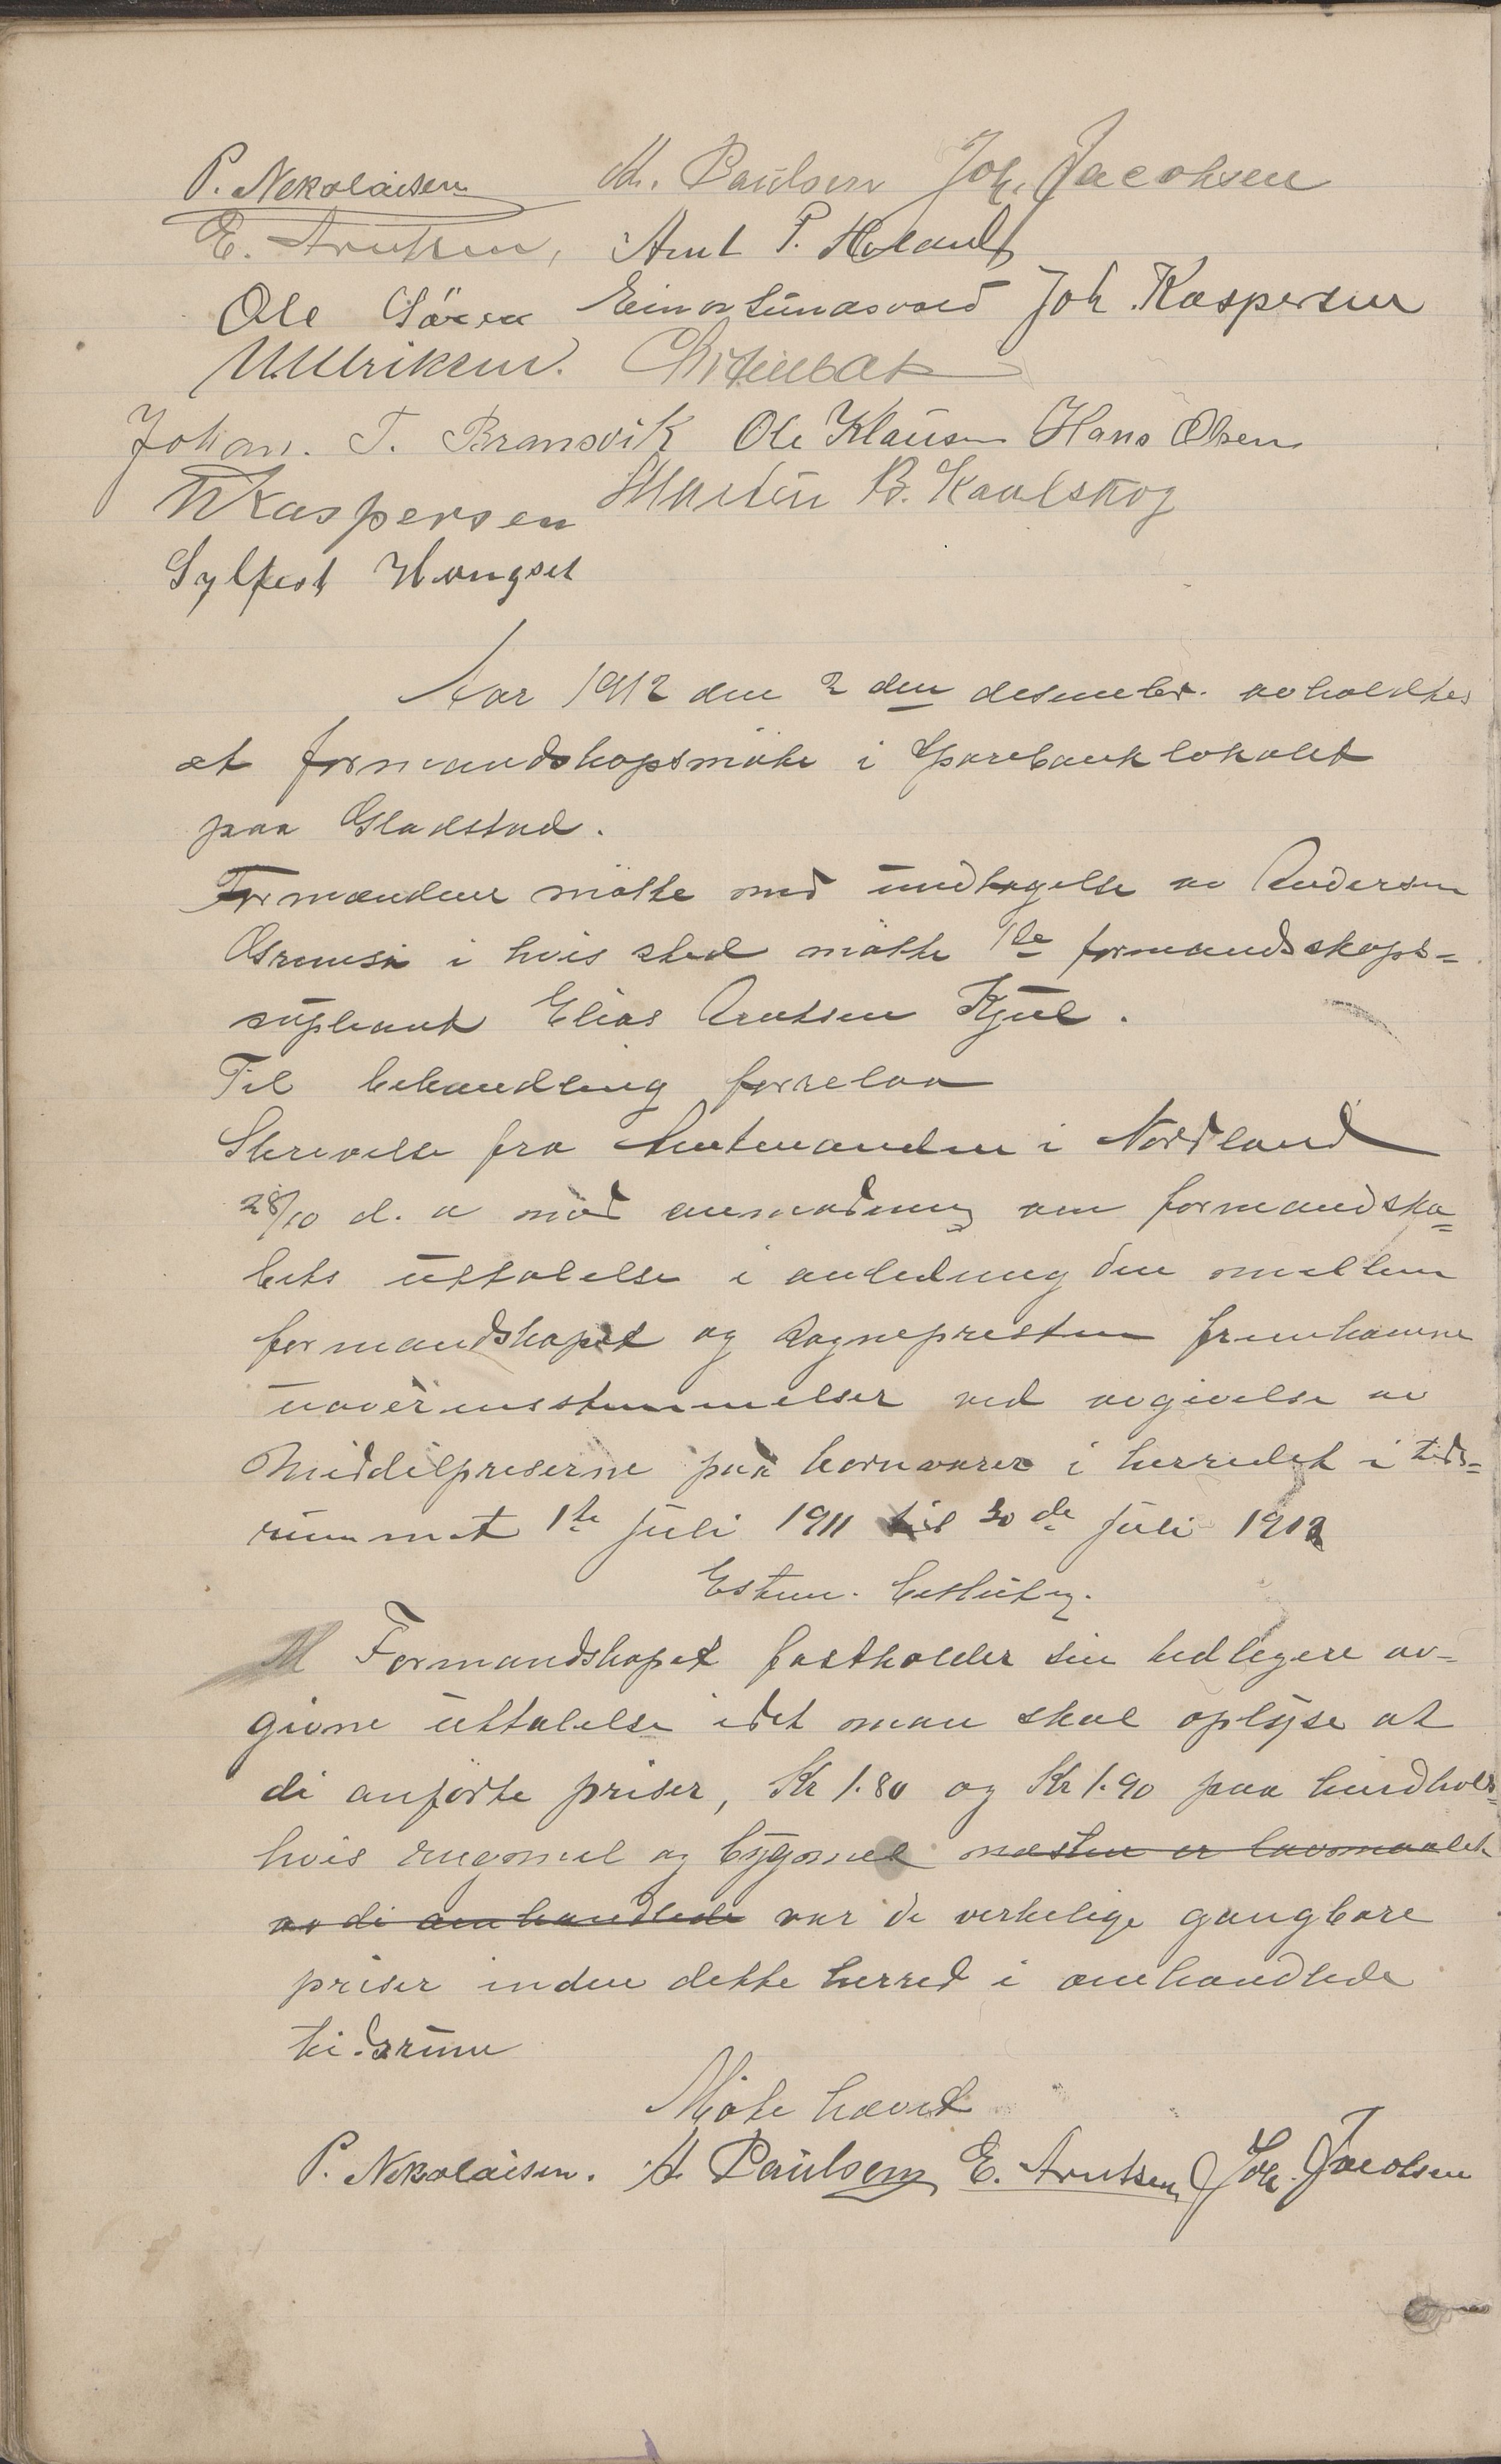 P. Nekolaisen Kh. Paulsen Joh. Jacobsen
E. Arntsen, Arnt P. Holand
Ole Sören Einar Sundsvold Joh. Kaspersen
U. Ulriksen.
Johan. T. Bransvik Ole Klausen Hans Olsen
Kaspersen Martin B. Kaalskog
Sylfest Hongset
Aar 1912 den 2 den desember. avholdtes
et formandskapsmøte i Sparebanklokalet
paa Gladstad.
Formændene møtte med undtagelse av Andersen
i hvis sted møtte 1ste formandsskaps=
supleant Elias Arntsen Kjul.
Til behandling forrelaa
Skrivelse fra Amtmanden i Nordland
28/10 d. a med anmodning om formandska=
bets uttalelse i anledning den mellem
formandskapet og Sognepresten fremkomne
uoverensstemmelser ved avgivelse av
Middelpriserne paa kornvarer i herredet i tids=
rummet 1ste juli 1911 til 30de juli 1912
Enstem. beslutn.
Formandskapet fastholder sin tidligere av=
givne uttalelse idet man skal oplyse at
di anførte priser, Kr 1.80 og Kr 1.90 paa hendhols=
hvis rugmel og bygmel næsten er lavmaalet
av di omhandlede var de verkelige gangbare
priser inden dette herred i omhandlede
tidsrum
Møte hævet
P. Nekolaisen. Kh. Paulsen E. Arntsen Joh. Jacobsen